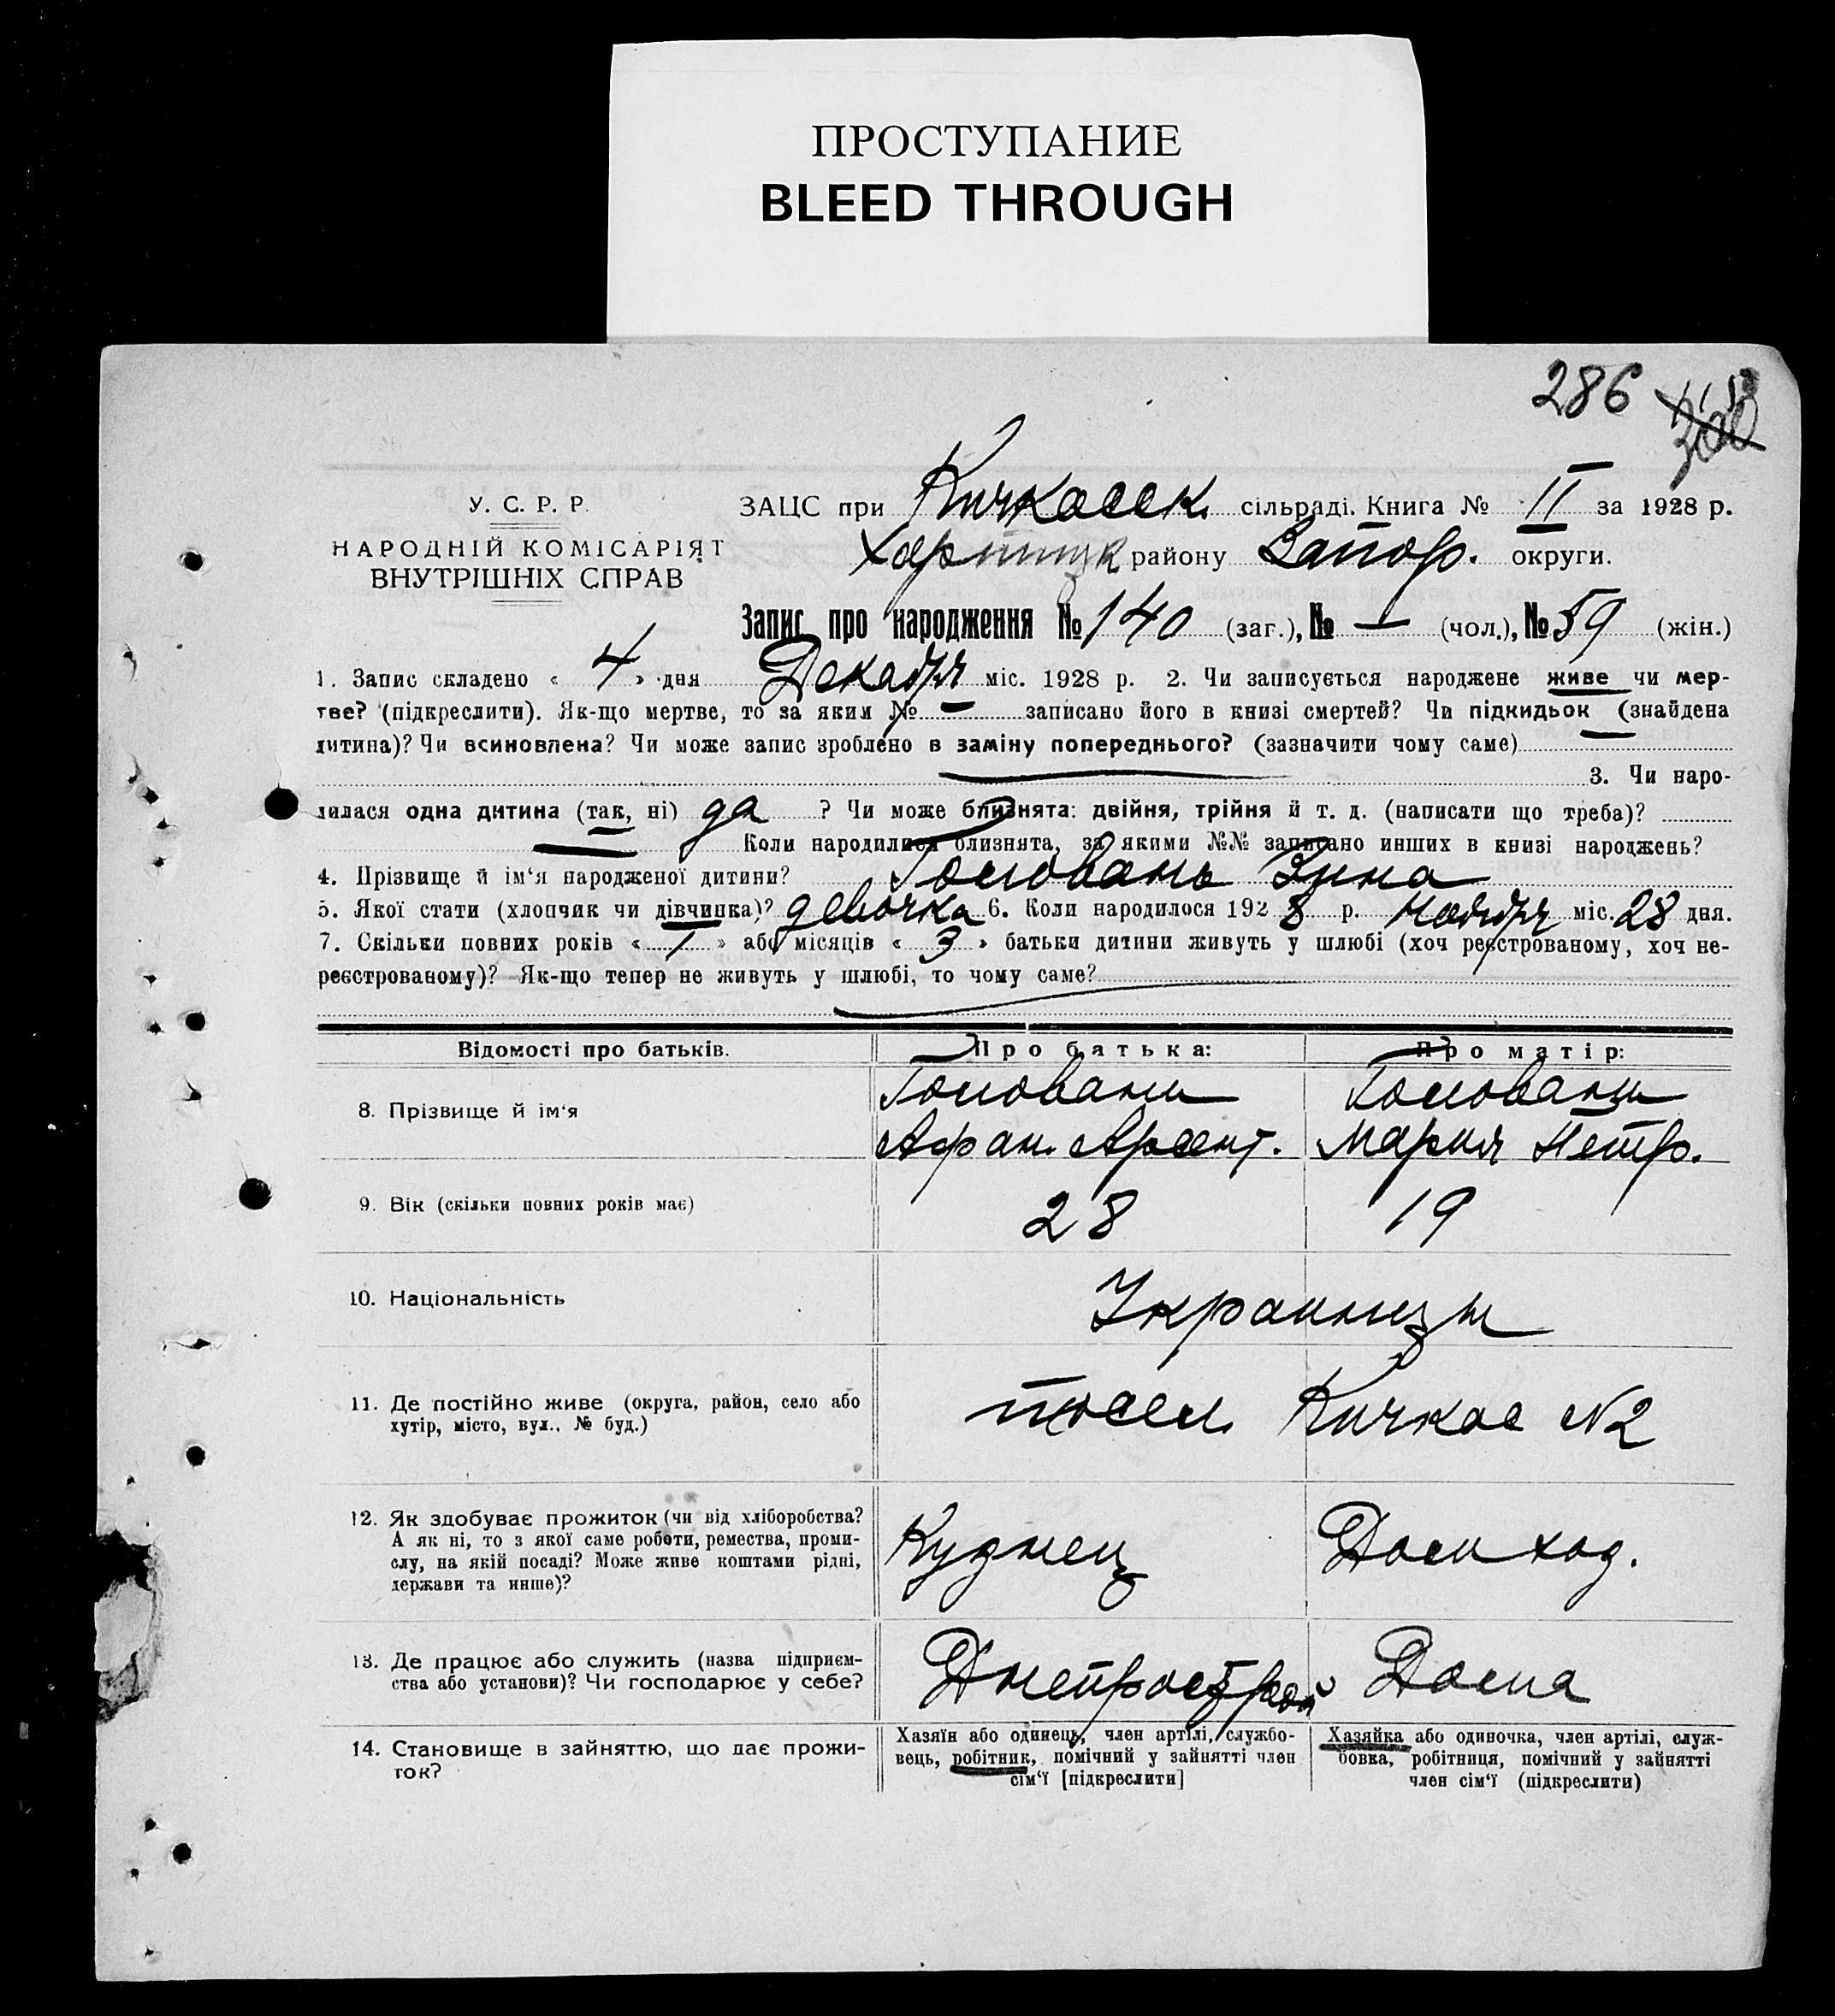 ПРОСТУПАНИЕ
BLEED THROUGH
286 300
У. С. Р. Р.
НАРОДНІЙ КОМІСАРІЯТ
ВНУТРІШНІХ СПРАВ
ЗАЦС при Кичкасск. сільраді. Книга № II за 1928 р.
району Запор. округи.
Запис про народження № 140 (заг.), № — (чол.), № 59 (жін.)
1. Запис складено « 4 » дня Декабря міс. 1928 р. 2. Чи записується народжене живе чи мер-
тве? (підкреслити). Як-що мертве, то за яким № — записано його в книзі смертей? Чи підкидьок (знайдена
дитина)? Чи всиновлена? Чи може запис зроблено в заміну попереднього? (зазначити чому саме)
3. Чи наро-
дилася одна дитина (так, ні) да ? Чи може близнята: двійня, трійня й т. д. (написати що треба)?
Коли народилися близнята, за якими №№ записано инших в книзі народжень?
4. Прізвище й ім‘я народженої дитини? Головань Зина
5. Якої стати (хлопчик чи дівчинка)? девочка 6. Коли народилося 1928 р. Ноября міс. 28 дня.
7. Скільки повних років « 1 » або місяців « 3 » батьки дитини живуть у шлюбі (хоч реєстрованому, хоч не-
реєстрованому)? Як-що тепер не живуть у шлюбі, то чому саме?
Відомості про батьків. Про батька: Про матір:
8. Прізвище й ім‘я
Головани Головани
Афан. Арсент. Мария Петр.
9. Вік (скільки повних років має) 28 19
10. Національність Украинцы
11. Де постійно живе (округа, район, село або
хутір, місто, вул., № буд.)
посел. Кичкас №2
12. Як здобуває прожиток (чи від хліборобства?
А як ні, то з якої саме роботи, ремества, проми-
слу, на якій посаді? Може живе коштами рідні,
держави та инше)?
Кузнец Дом хоз.
13. Де працює або служить (назва підприєм-
ства або установи)? Чи господарює у себе?
Днепрострой Дома
14. Становище в зайняттю, що дає прожи-
ток?
Хазяїн або одинець, член артілі, службо-
вець, робітник, помічний у зайнятті член
сім‘ї [підкреслити]
Хазяйка або одиночка, член артілі, служ-
бовка, робітниця, помічний у зайнятті
член сім‘ї (підкреслити)